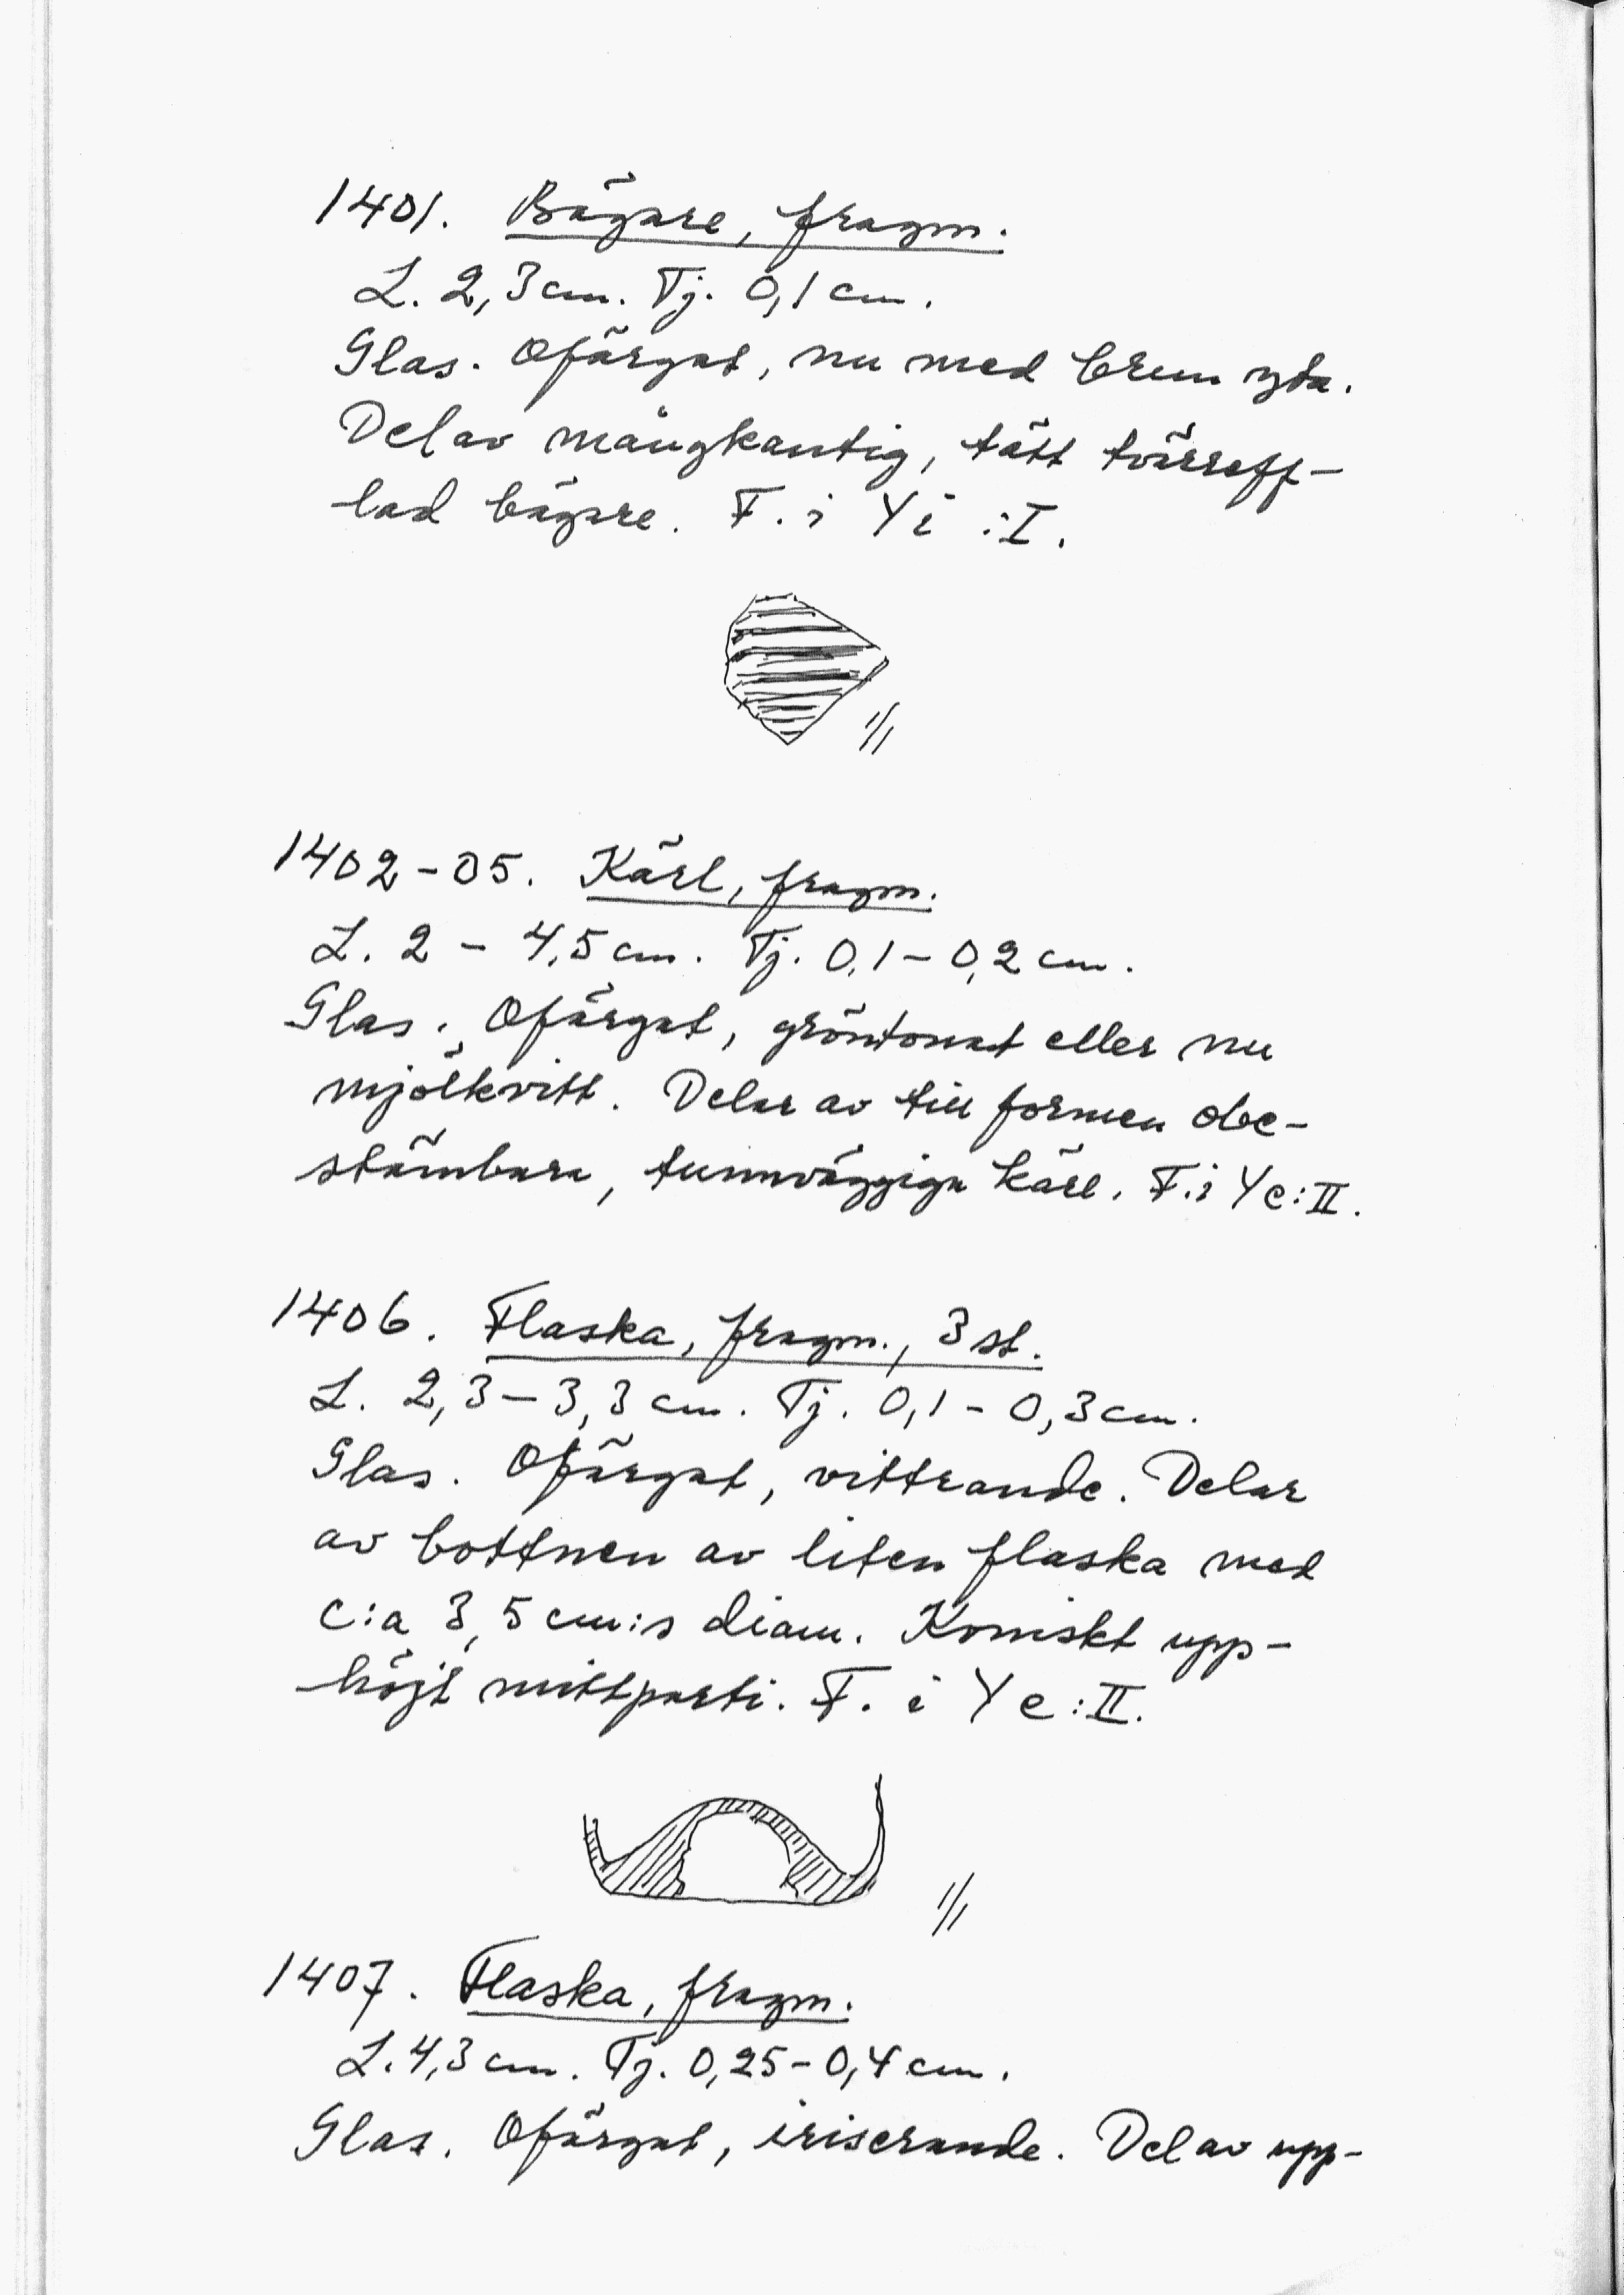 1401. Bägare, fragm.
L. 2,3 cm. Tj. 0,1 cm.
Glas. Ofärgat, nu med brun yta.
Del av mångkantig, tätt tvärreff-
lad bägare. F. i Y i :I.
1/1
1402-05. Kärl, fragm.
L. 2 - 4,5 cm. Tj. 0,1 - 0,2 cm.
Glas. Ofärgat, gröntonat eller nu
mjölkvitt. Delar av till formen obe-
stämbara, tunnväggiga kärl. F. i Y e:II.
1406. Flaska, fragm., 3 st.
L. 2,3 - 3,3 cm. Tj. 0,1 - 0,3 cm.
Glas. Ofärgat, vittrande. Delar
av bottnen av liten flaska med
c:a 3,5 cm:s diam. Koniskt upp-
höjt mittparti. F. i Y e:II.
1/1
1407. Flaska, fragm.
L. 4,3 cm. Tj. 0,25 - 0,4 cm.
Glas. Ofärgat, iriserande. Del av upp-